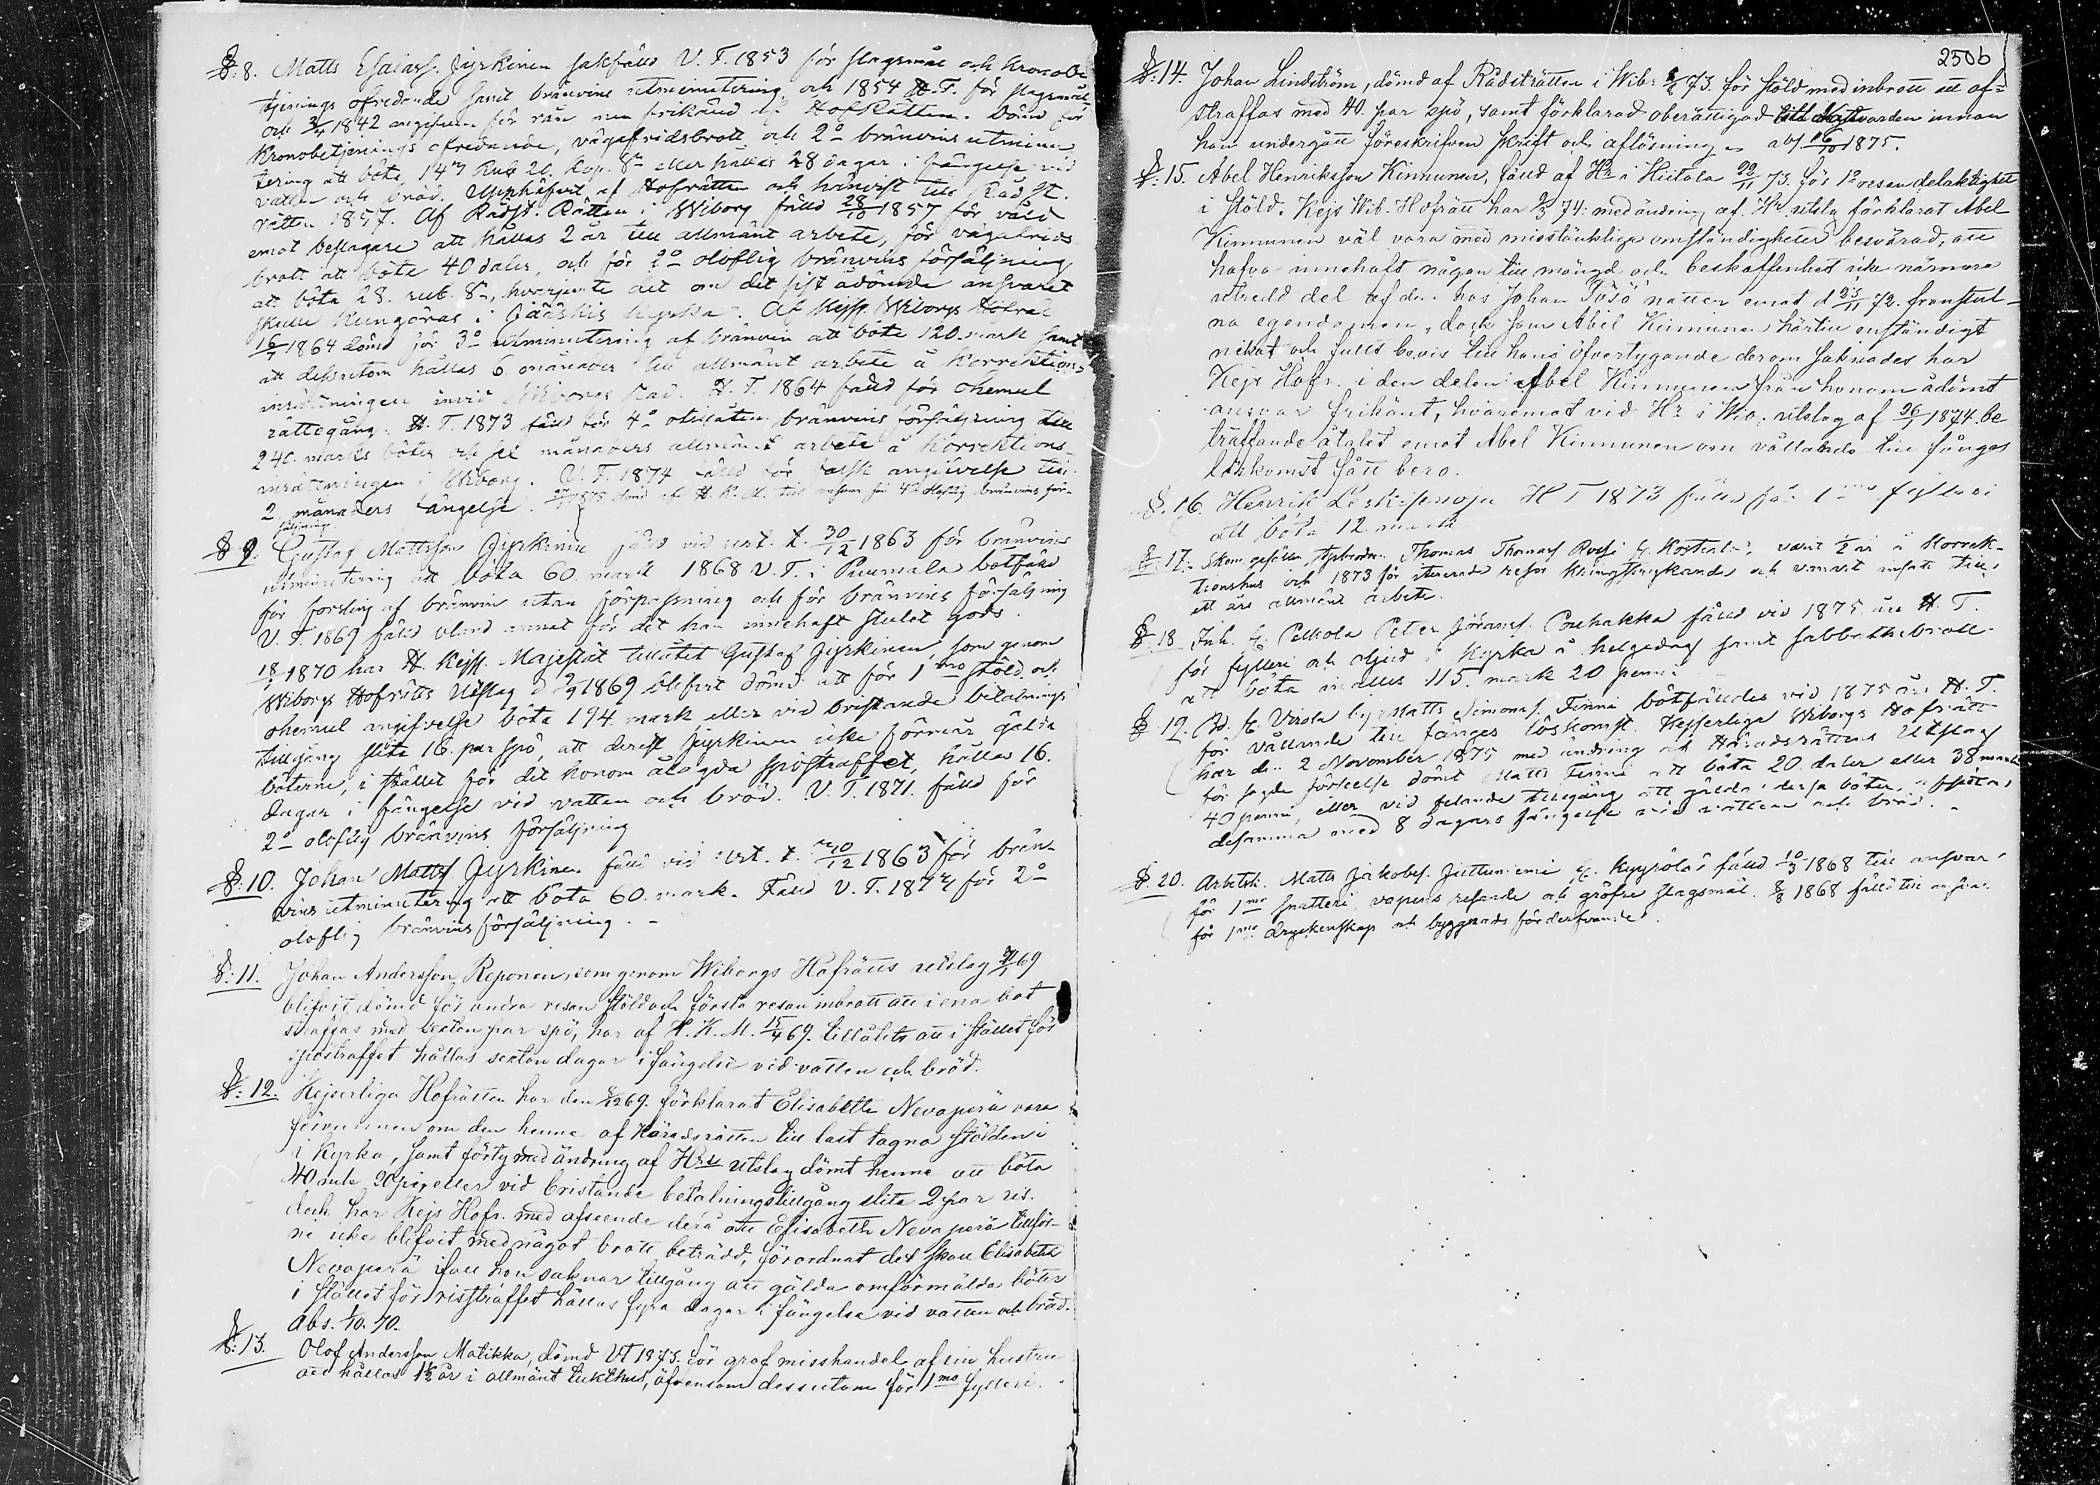 §:8. Matts Esaiass. Jyrkinen sakfälld V. T. 1853 för slagsmål och kronobe
tjenings ofredande samt bränvins utminutering och 1854 H. T. för slagsmål
och 3/4 1842 angifven för rån men frikänd af HofRätten. Dömd för
Kronobetjenings ofredande, vägafridsbrott och 2o bränvins utminu
tering att böta 147 Rub 20. Kop. Sr eller hållas 28 dagar i fängelse vid
vatten och bröd. Upphäfvit af Hofrätten och hänvist till Rådst.
rätten 1857. Af Rådst. Rätten i Wiborg fälld 28/10 1857 för våld
emot beslagare att hållas 2 år till allmänt arbete, för vägafrids
brott att böta 40 daler, och för 2o oloflig bränvins försäljning
att böta 28. rub. Sr, hvarjemte det om det sist ådömde ansvaret
skulle kungöras i Jääskis kyrka. Af Kejs. Wiborgs Hofrätt
16/ 1864 dömd för 3o utminutering af bränvin att böta 120 mark samt
att dessutom hållas 6 månader till allmänt arbete å Korrektions
inrättningen invid Wiborgs stad. H. T. 1864 fälld för ohemul
rättegång. H. T. 1873 fälld för 4o otillåten bränvins försäljning till
240. marks böter och månaders allmänt arbete å Korrektions
inrättningen i Wiborg. V. T. 1874 fälld för falsk angifvelse till
2 månaders fängelse. 1875 dömd af H. K. M. till ansvar för 4o oloflig bränvins för-
säljning.
§ 9. Gustaf Mattsson Jyrkinen fälld vid urt. t. 30/12 1863 för bränvins
utminutering att böta 60 mark 1868 V. T. i Puumala botfälld
för forsling af bränvin utan förpassning och för bränvins försäljning
V. T. 1869 fälld bland annat för det han innehaft stulet gods.
18/ 1870 har H. Kejs. Majestät tillåtit Gustaf Jyrkinen, som genom
Wiborgs Hofrätts Utslag d 9/9 1869 blifvit dömd att för 1mo stöld och
ohemul angifvelse böta 194 mark eller vid bristande betalnings
tillgång slita 16. par spö, att derest Jyrkinen icke förmår gälda
böterne, i stället för det honom ålagda spöstraffet, hållas 16.
dagar i fängelse vid vatten och bröd. V. T. 1871. fälld för
2o oloflig bränvins försäljning
§:10. Johan Matts. Jyrkinen fälld vid urt. t. 30/12 1863 för brän-
vins utminutering att böta 60 mark. Fälld V. T. 1874 för 2o
oloflig bränvins försäljning. -
§:11. Johan Andersson Reponen, som genom Wiborgs Hofrätts utslag 69
blifvit dömd för andra resan stöld och första resan inbrott att i ena bot
straffas med sexton par spö, har af H. K. M. 15/4 69. tillåtits att i stället för
spöstraffet hållas sexton dagar i fängelse vid vatten och bröd.
§:12. Kejserliga Hofrätten har den 69. förklarat Elisabeth Nevaperä vara
förvunnen om den henne af Häradsrätten till last tagna stölden i
i Kyrka, samt förty med ändring af HRs utslag dömt henne att böta
40 mk 20 p:i, eller vid bristande betalningstillgång slita 2 par ris.
dock har Kejs Hofr. med afseende derå att Elisabeth Nevaperä tillför-
ne icke blifvit med något brott beträdd, förordnat det skall Elisabeth
Nevaperä ifall hon saknar tillgång att gälda omförmälda böter
i stället för risstraffet hållas fyra dagar i fängelse vid vatten och bröd.
Abs. 70.
§:13. Olof Andersson Matikka, dömd VT 1873. för graf misshandel af sin hustru
att hållas 1½ år i allmänt tukthus, äfvensom dessutom för 1mo fylleri.
250b
§:14. Johan Lindström, dömd af Rådsträtten i Wib: 73. för stöld med inbrott att af-
straffas med 40. par spö, samt förklarad oberättigad till Nattvarden innan
han undergått föreskrifven skrift och aflösning. abs 16/10 1875.
§:15. Abel Henriksson Kinnunen, fälld af HR i Hiitola 22/11 73. för 1o resan delaktighet
i stöld. Kejs Wib. Hofrätt har 74: med ändring af HRs utslag förklarat Abel
Kinnunen väl vara med misstänkliga omständigheter besvärad, att
hafva innehaft någon till mängd och beskaffenhet icke närmare
utredd del af den hos Johan natten emot d 23/11 72. frånstul-
na egendomen, dock som Abel Kinnunen härtill enständigt
nekat och fullt bevis till hans öfvertygande derom saknades har
Kejs Hofr. i den delen Abel Kinnunen från honom ådömt
ansvar frikänt, hvaremot vid HR i utslag af 26/ 1874. be
träffande åtalet emot Abel Kinnunen om vållande till fånges
löskomst fått bero.
§:16. Henrik HT 1873 fälld för 1mo fylleri
att böta 12 mark
§:17. Thomas Thomass Rossi fr. varit ½ år i Korrek-
tionshus och 1873 för itererade resor kringstrykande och vanart insatt till
ett års allmänt arbete.
§:18 Inh. fr. Pelkola Peter Göranss. Pouhakka fälld vid 1875 års H. T.
för fylleri och oljud i Kyrka å helgedag samt sabbathsbrott
att böta inalles 115. mark 20 penni
§ 19. fr. Virola by Matts Simonss. Finni botfälldes vid 1875 års H. T.
för vållande till fånges löskomst. Kejserliga Wiborgs Hofrätt
har den 2 November 1875 med ändring af Häradsrättens Utslag
för sagde förseelse dömt Matts Finni att böta 20. daler eller 38 mark
40 penni, eller vid felande tillgång att gälda dessa böter, afsitta
desamma med 8 dagars fängelse vid vatten och bröd. -
§ 20. Arbetsk. Matts Jakobss. Juttuniemi fr. Kyyrölä fälld 10/3 1868 till ansvar
för 1mo snatteri vapens resande och gröfre slagsmål. 8/8 1868 fälld till ansvar
för 1mo dryckenskap och byggnads förderfvande.